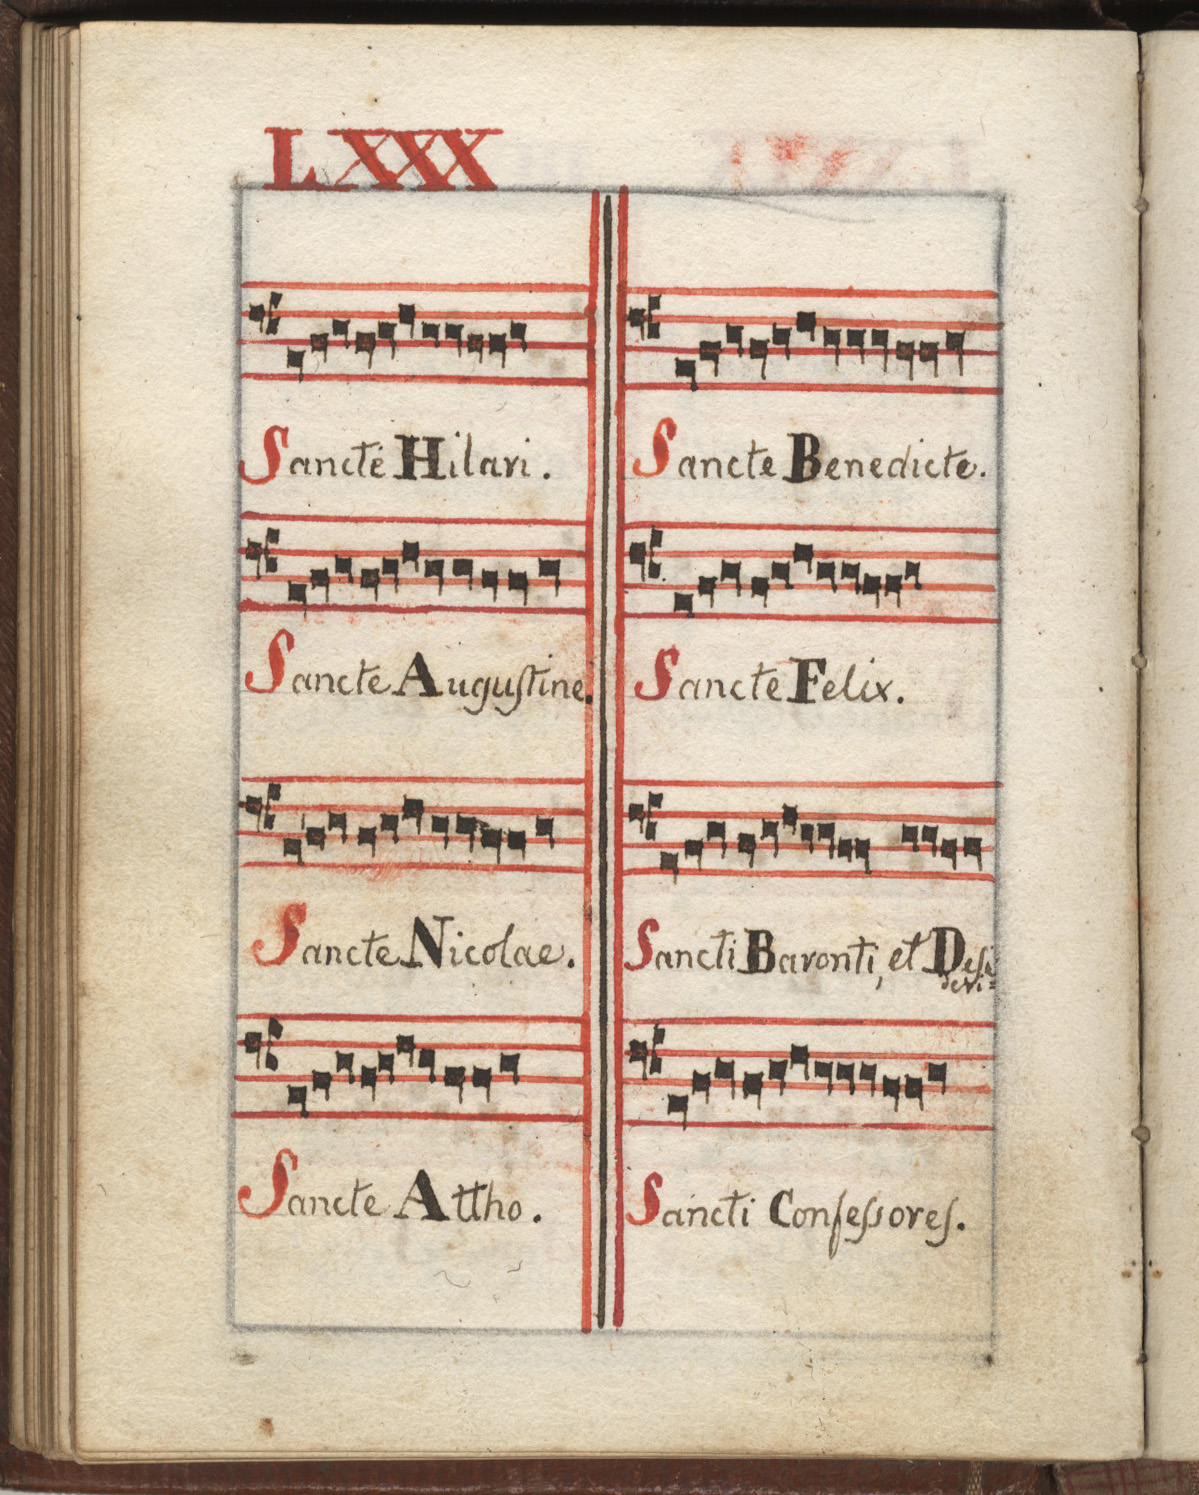 LXXX
Sancte Hilari.
Sancte Auguſtine.
Sancte Nicolae.
Sancte Attho.
Sancte Benedicte.
Sancte Felix.
Sancti Baronti, et Deſi
deri=
Sancti Confeſsoreſ.